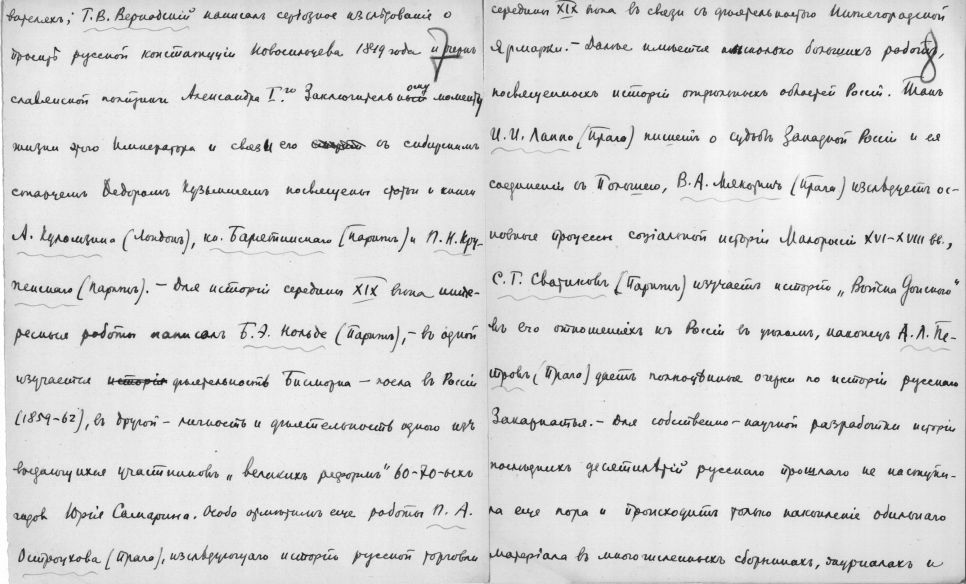 вателяхъ; Г. В. Вернадскій написалъ серьозное изслѣдованіе о
проектѣ русской конституціи Новосильцева 1819 года и
7
славянской политики Александра I.го Заключительному моменту
жизни этого Императора и связи его съ сибирскимъ
старцемъ Ѳедоромъ Кузьмичемъ посвящены статьи и книги
А. Куломзина (Лондонъ), кн. Барятинскаго (Парижъ) и П. Н. Кру-
пенскаго (Парижъ). — Для исторіи середины XIX вѣка инте-
ресныя работы написалъ Б. Э. Нольде (Парижъ), — въ одной
изучается исторія дѣятельность Бисмарка — посла въ Россіи
(1859-62), въ другой — личность и дѣятельность одного изъ
выдающихся участниковъ „великихъ реформъ" 60-70-ыхъ
годовъ Юрія Самарина. Особо отмѣтимъ еще работы П. А.
Остроухова (Прага), изслѣдующаго исторію русской торговли
середины XIX вѣка въ связи съ дѣятельностью Нижегородской
Ярмарки. — Далѣе имѣется нѣсколько большихъ работъ,
8
посвященныхъ исторіи отдѣльныхъ областей Россіи. Такъ
И. И. Лаппо (Прага) пишетъ о судьбѣ Западной Россіи и ея
соединеніи съ Польшею, В. А. Мякотинъ (Прага) изслѣдуетъ ос-
новные процессы соціальной исторіи Малоросіи XVI-XVIII вв.,
С. Г. Сватиковъ (Парижъ) изучаетъ исторію „Войска Донского"
въ его отношеніяхъ къ Россіи въ цѣломъ, наконецъ А. Л. Пе-
тровъ (Прага) даетъ полноцѣнные очерки по исторіи русскаго
Закарпатья. — Для собственно-научной разработки исторіи
послѣднихъ десятилѣтій русскаго прошлаго не наступи-
ла еще пора и происходитъ только накопленіе обильнаго
матеріала въ многочисленныхъ сборникахъ, журналахъ и